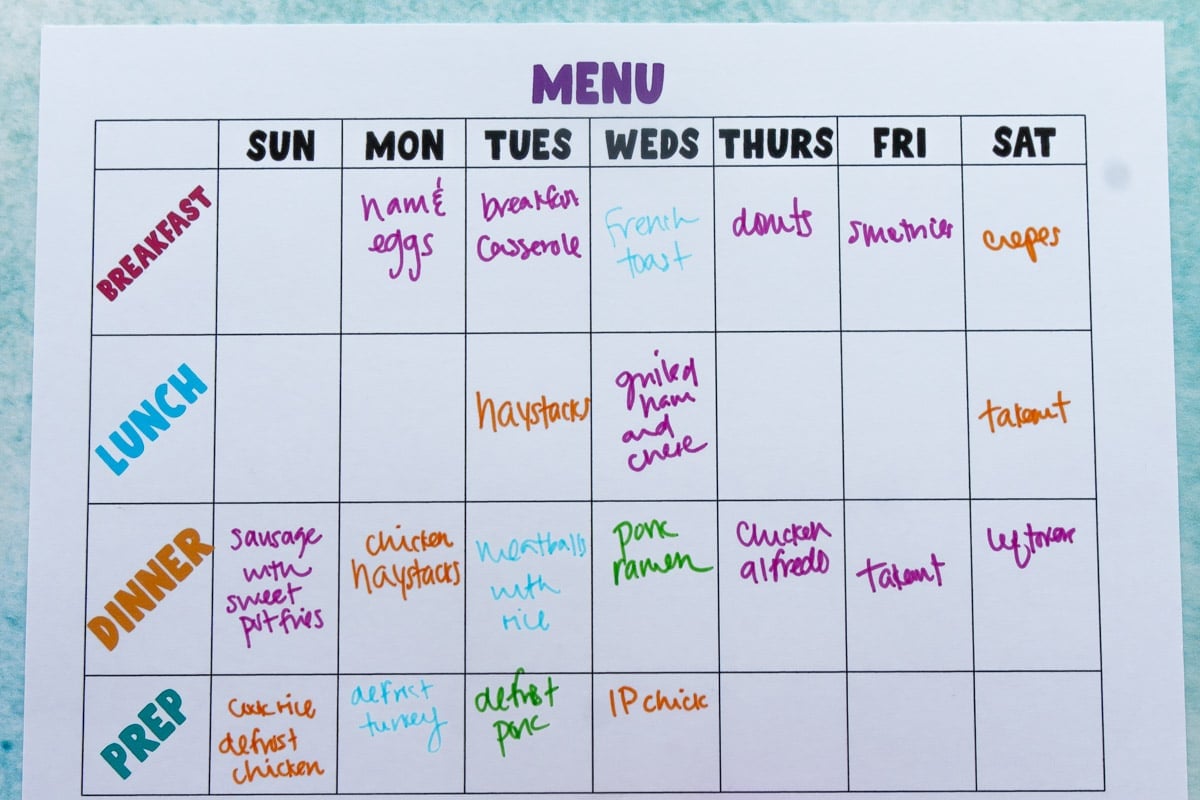 MENU
SUN MON TUES WEDS THURS FRI SAT
BREAKFAST
ham &
eggs
breakfast
casserole
french
toast
donuts
smoothies
crepes
LUNCH
haystacks
grilled
ham
and
cheese
takeout
DINNER
sausage
with
sweet
pot fries
chicken
haystacks
meatballs
with
rice
pork
ramen
chicken
alfredo
takeout
leftover
PREP
cook rice
defrost
chicken
defrost
turkey
defrost
pork
IP chick